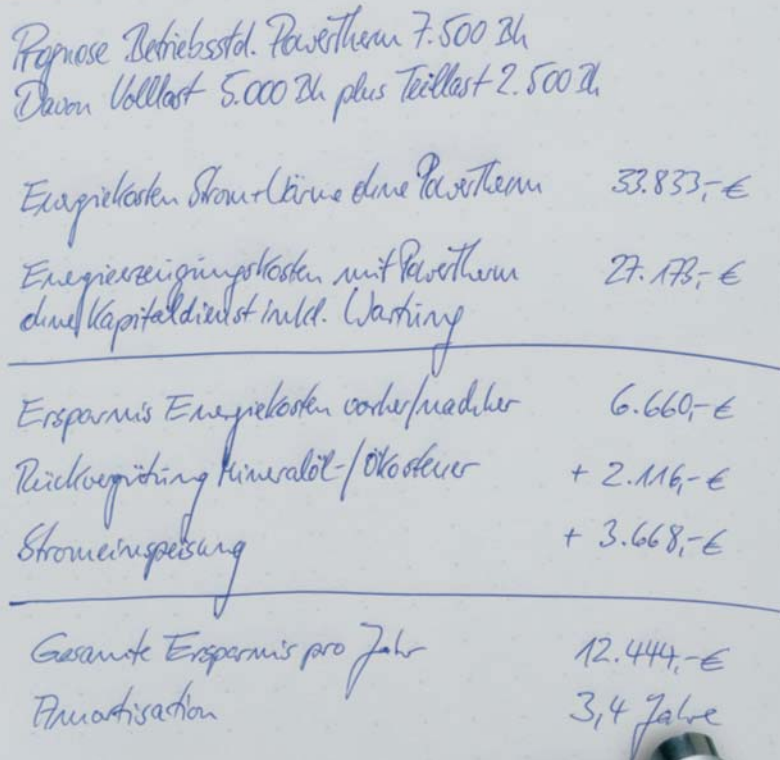 Prognose Betriebsstd. PowerTherm 7.500 Bh
Davon Volllast 5.000 Bh plus Teillast 2.500 Bh
Energiekosten Strom+Wärme ohne PowerTherm 33.833,-€
Energieerzeugungskosten mit PowerTherm 27.173,-€
ohne Kapitaldienst inkl. Wartung
Ersparnis Energiekosten vorher/nachher 6.660,-€
Rückvergütung Mineralöl-/Ökosteuer + 2.116,-€
Stromeinspeisung + 3.668,-€
Gesamte Ersparnis pro Jahr 12.444,-€
Amortisation 3,4 Jahre